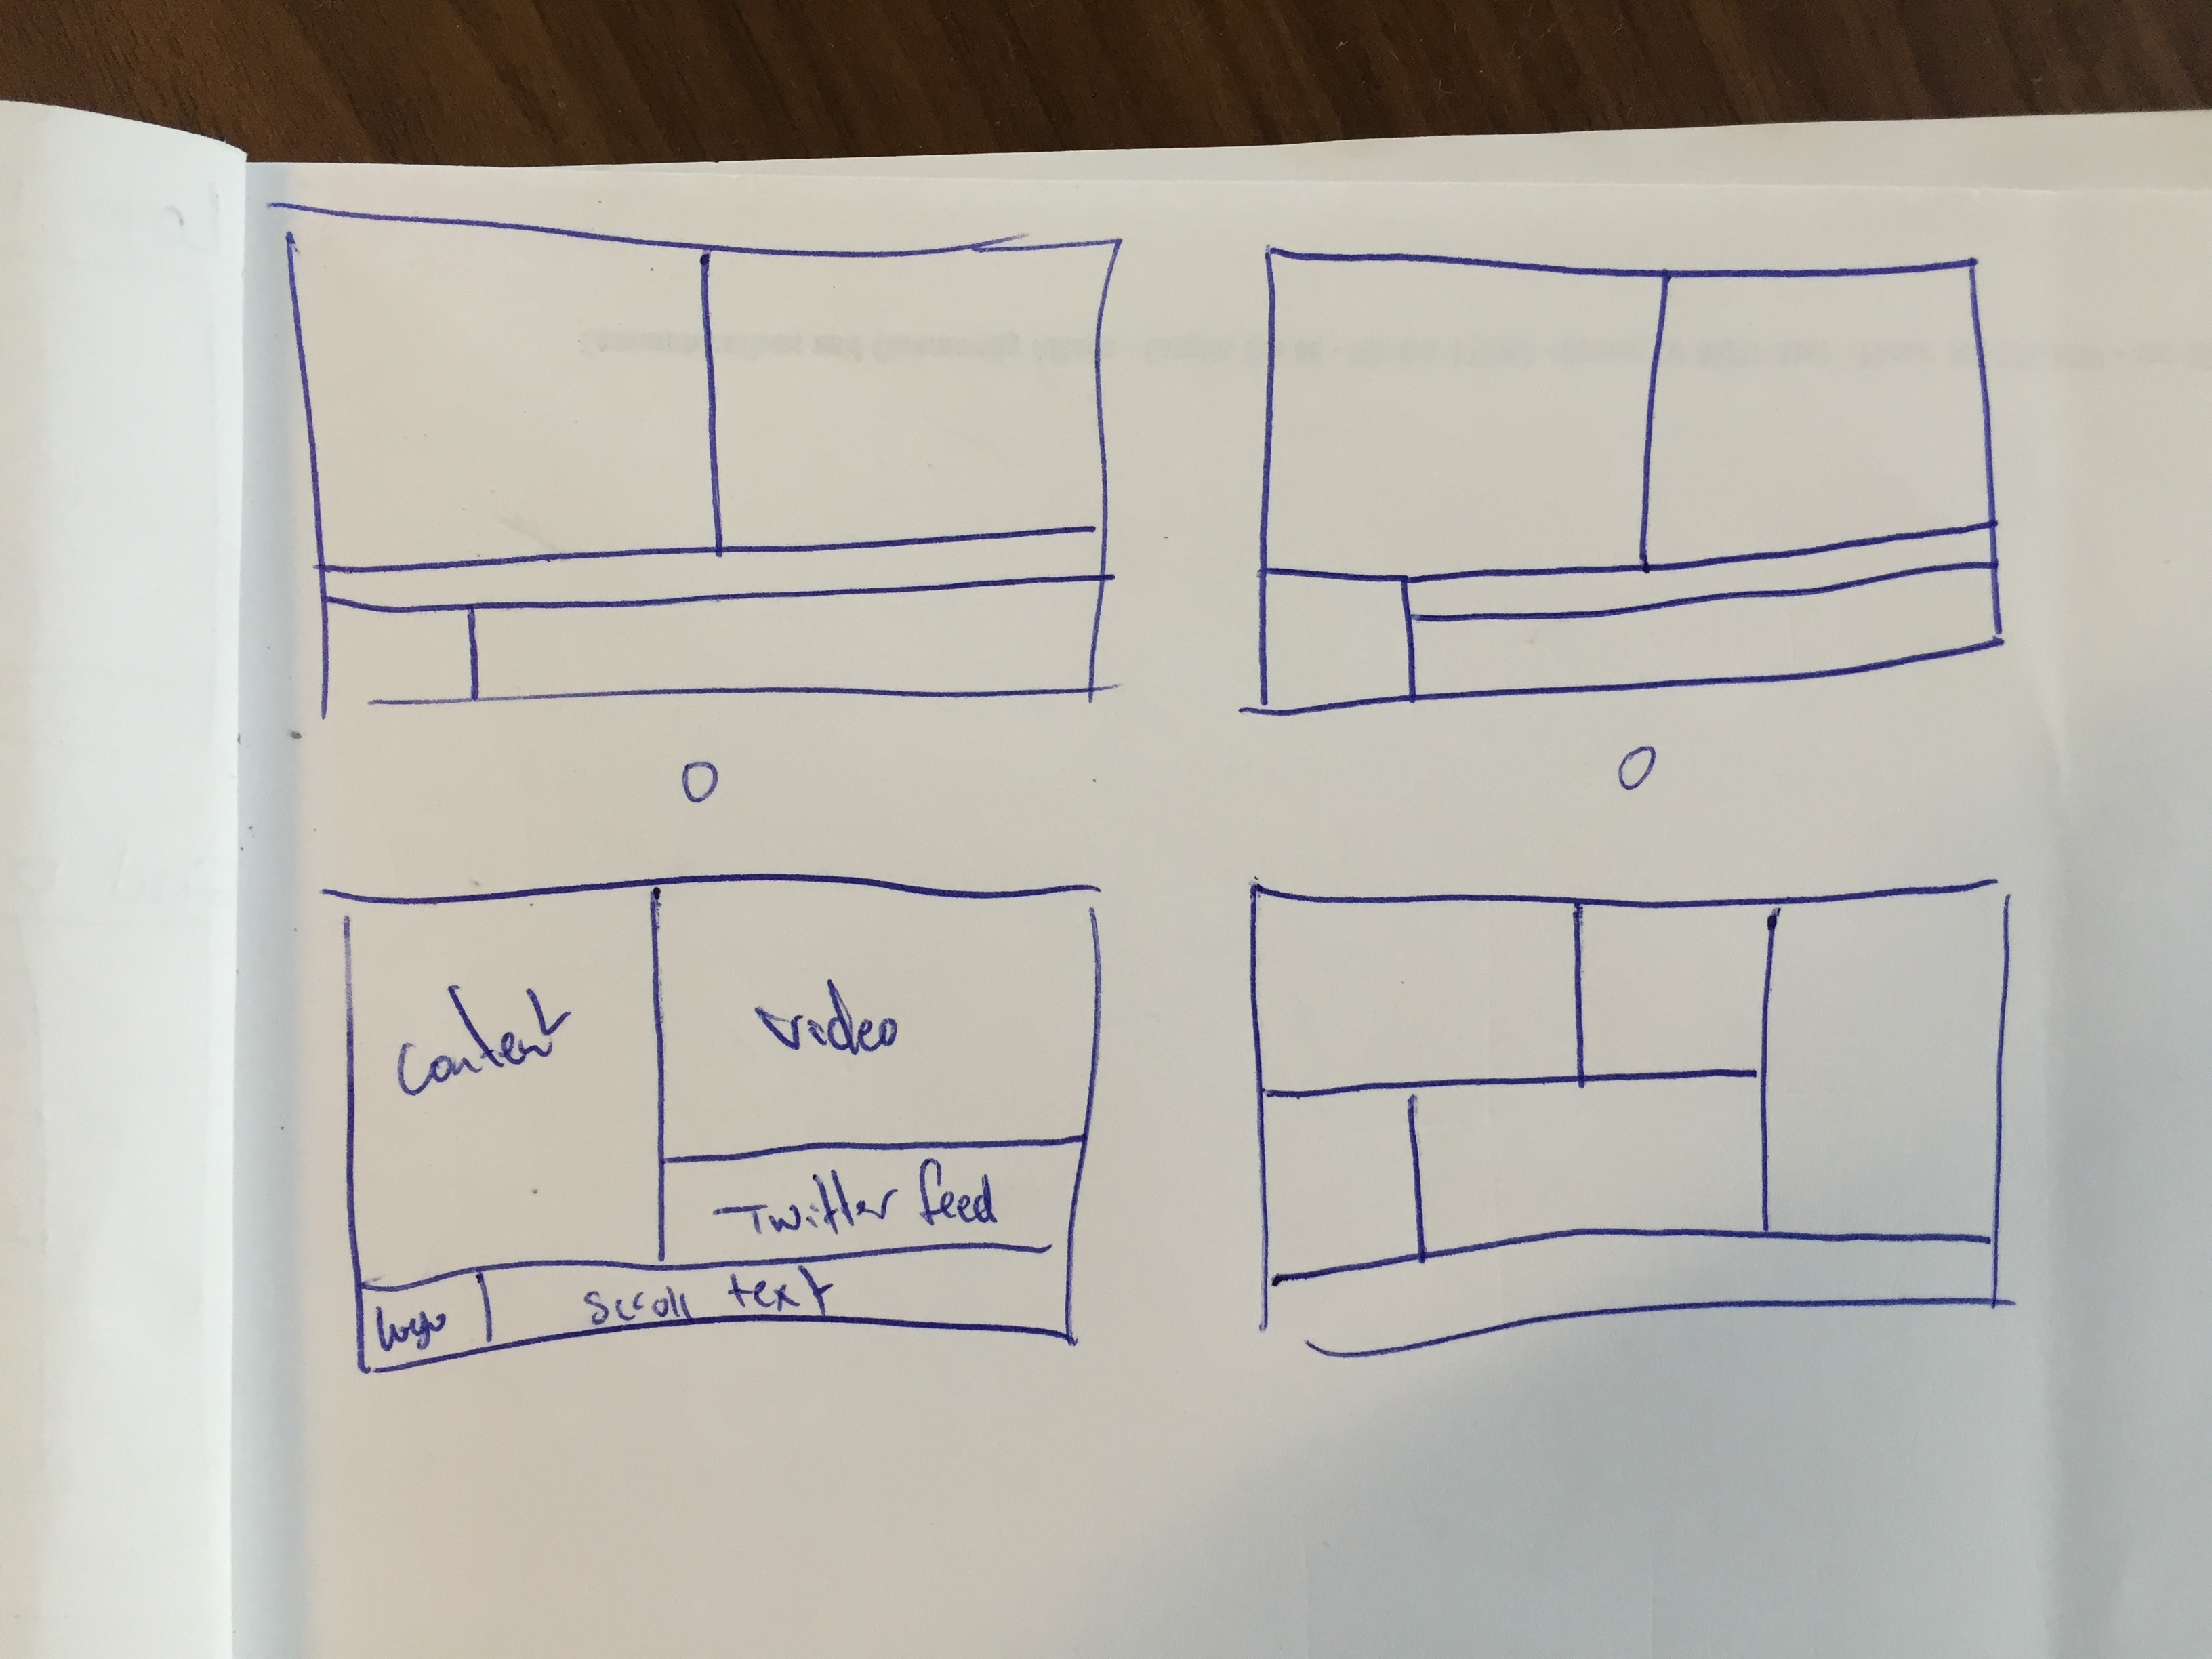 O
O
Content
Video
Twitter feed
logo
Scroll text